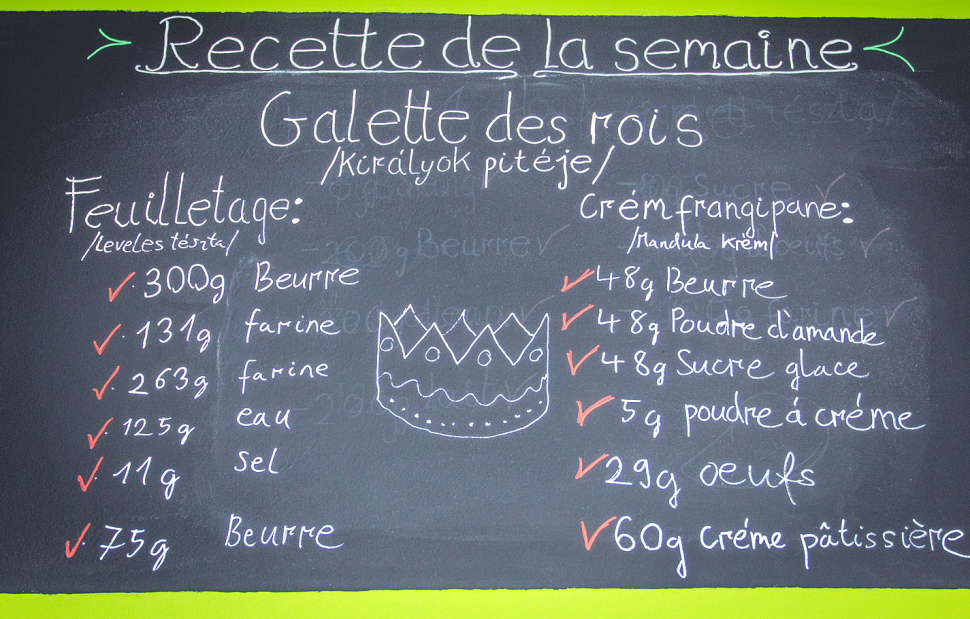 Recette de la semaine
Galette des rois
/Királyok pitéje/
Feuilletage:
/Leveles tészta/
300g Beurre
131g farine
263g farine
125g eau
11g sel
75g Beurre
Crém frangipane:
/Mandula krém/
48g Beurre
48g Poudre d'amande
48g Sucre glace
5g poudre á créme
29g oeufs
60g créme pâtissière